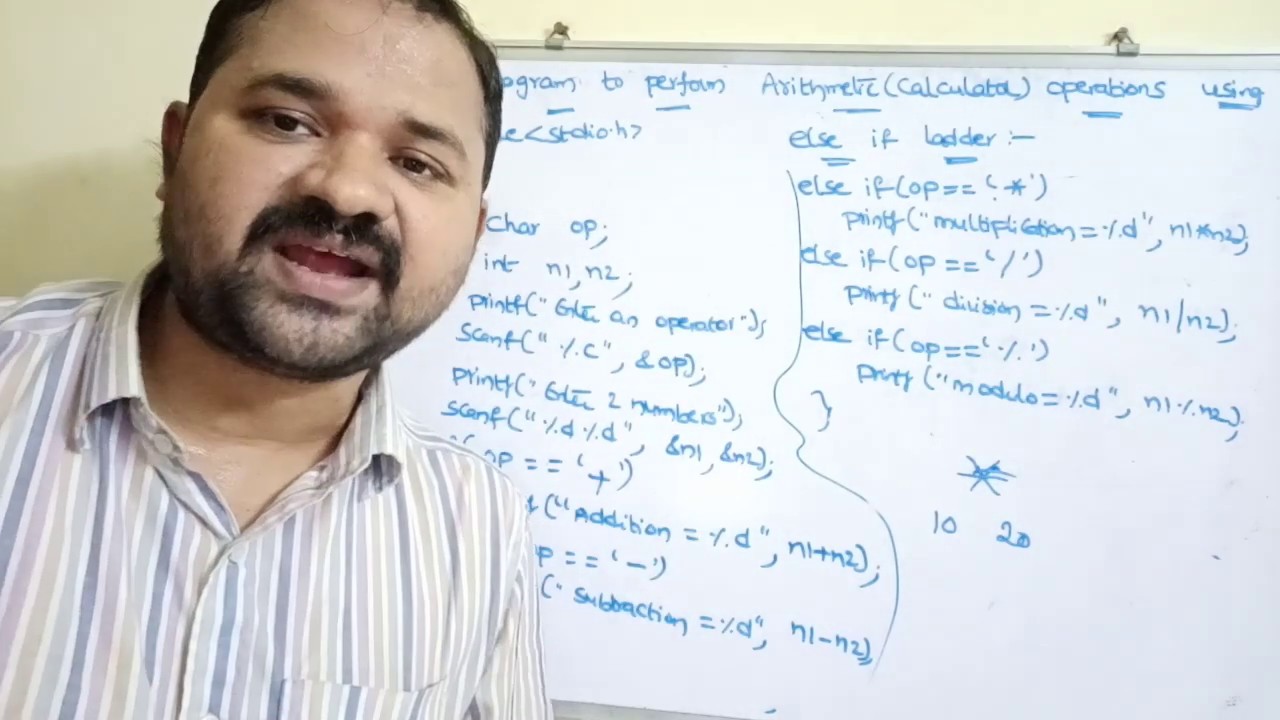 ogram to perform Arithmetic (Calculator) operations using
else if ladder :-
e<stdio.h>
char op;
int n1, n2;
printf(" Enter an operator");
scanf(" %c", &op);
printf(" Enter 2 numbers");
scanf(" %d %d", &n1, &n2);
op == '+')
("Addition = %d", n1+n2);
p == '-')
(" subtraction = %d", n1-n2);
else if(op == '*')
printf("multiplication = %d", n1*n2);
else if(op == '/')
printf(" division = %d", n1/n2);
else if(op == '%')
printf("modulo = %d", n1%n2);
}
*
10 20